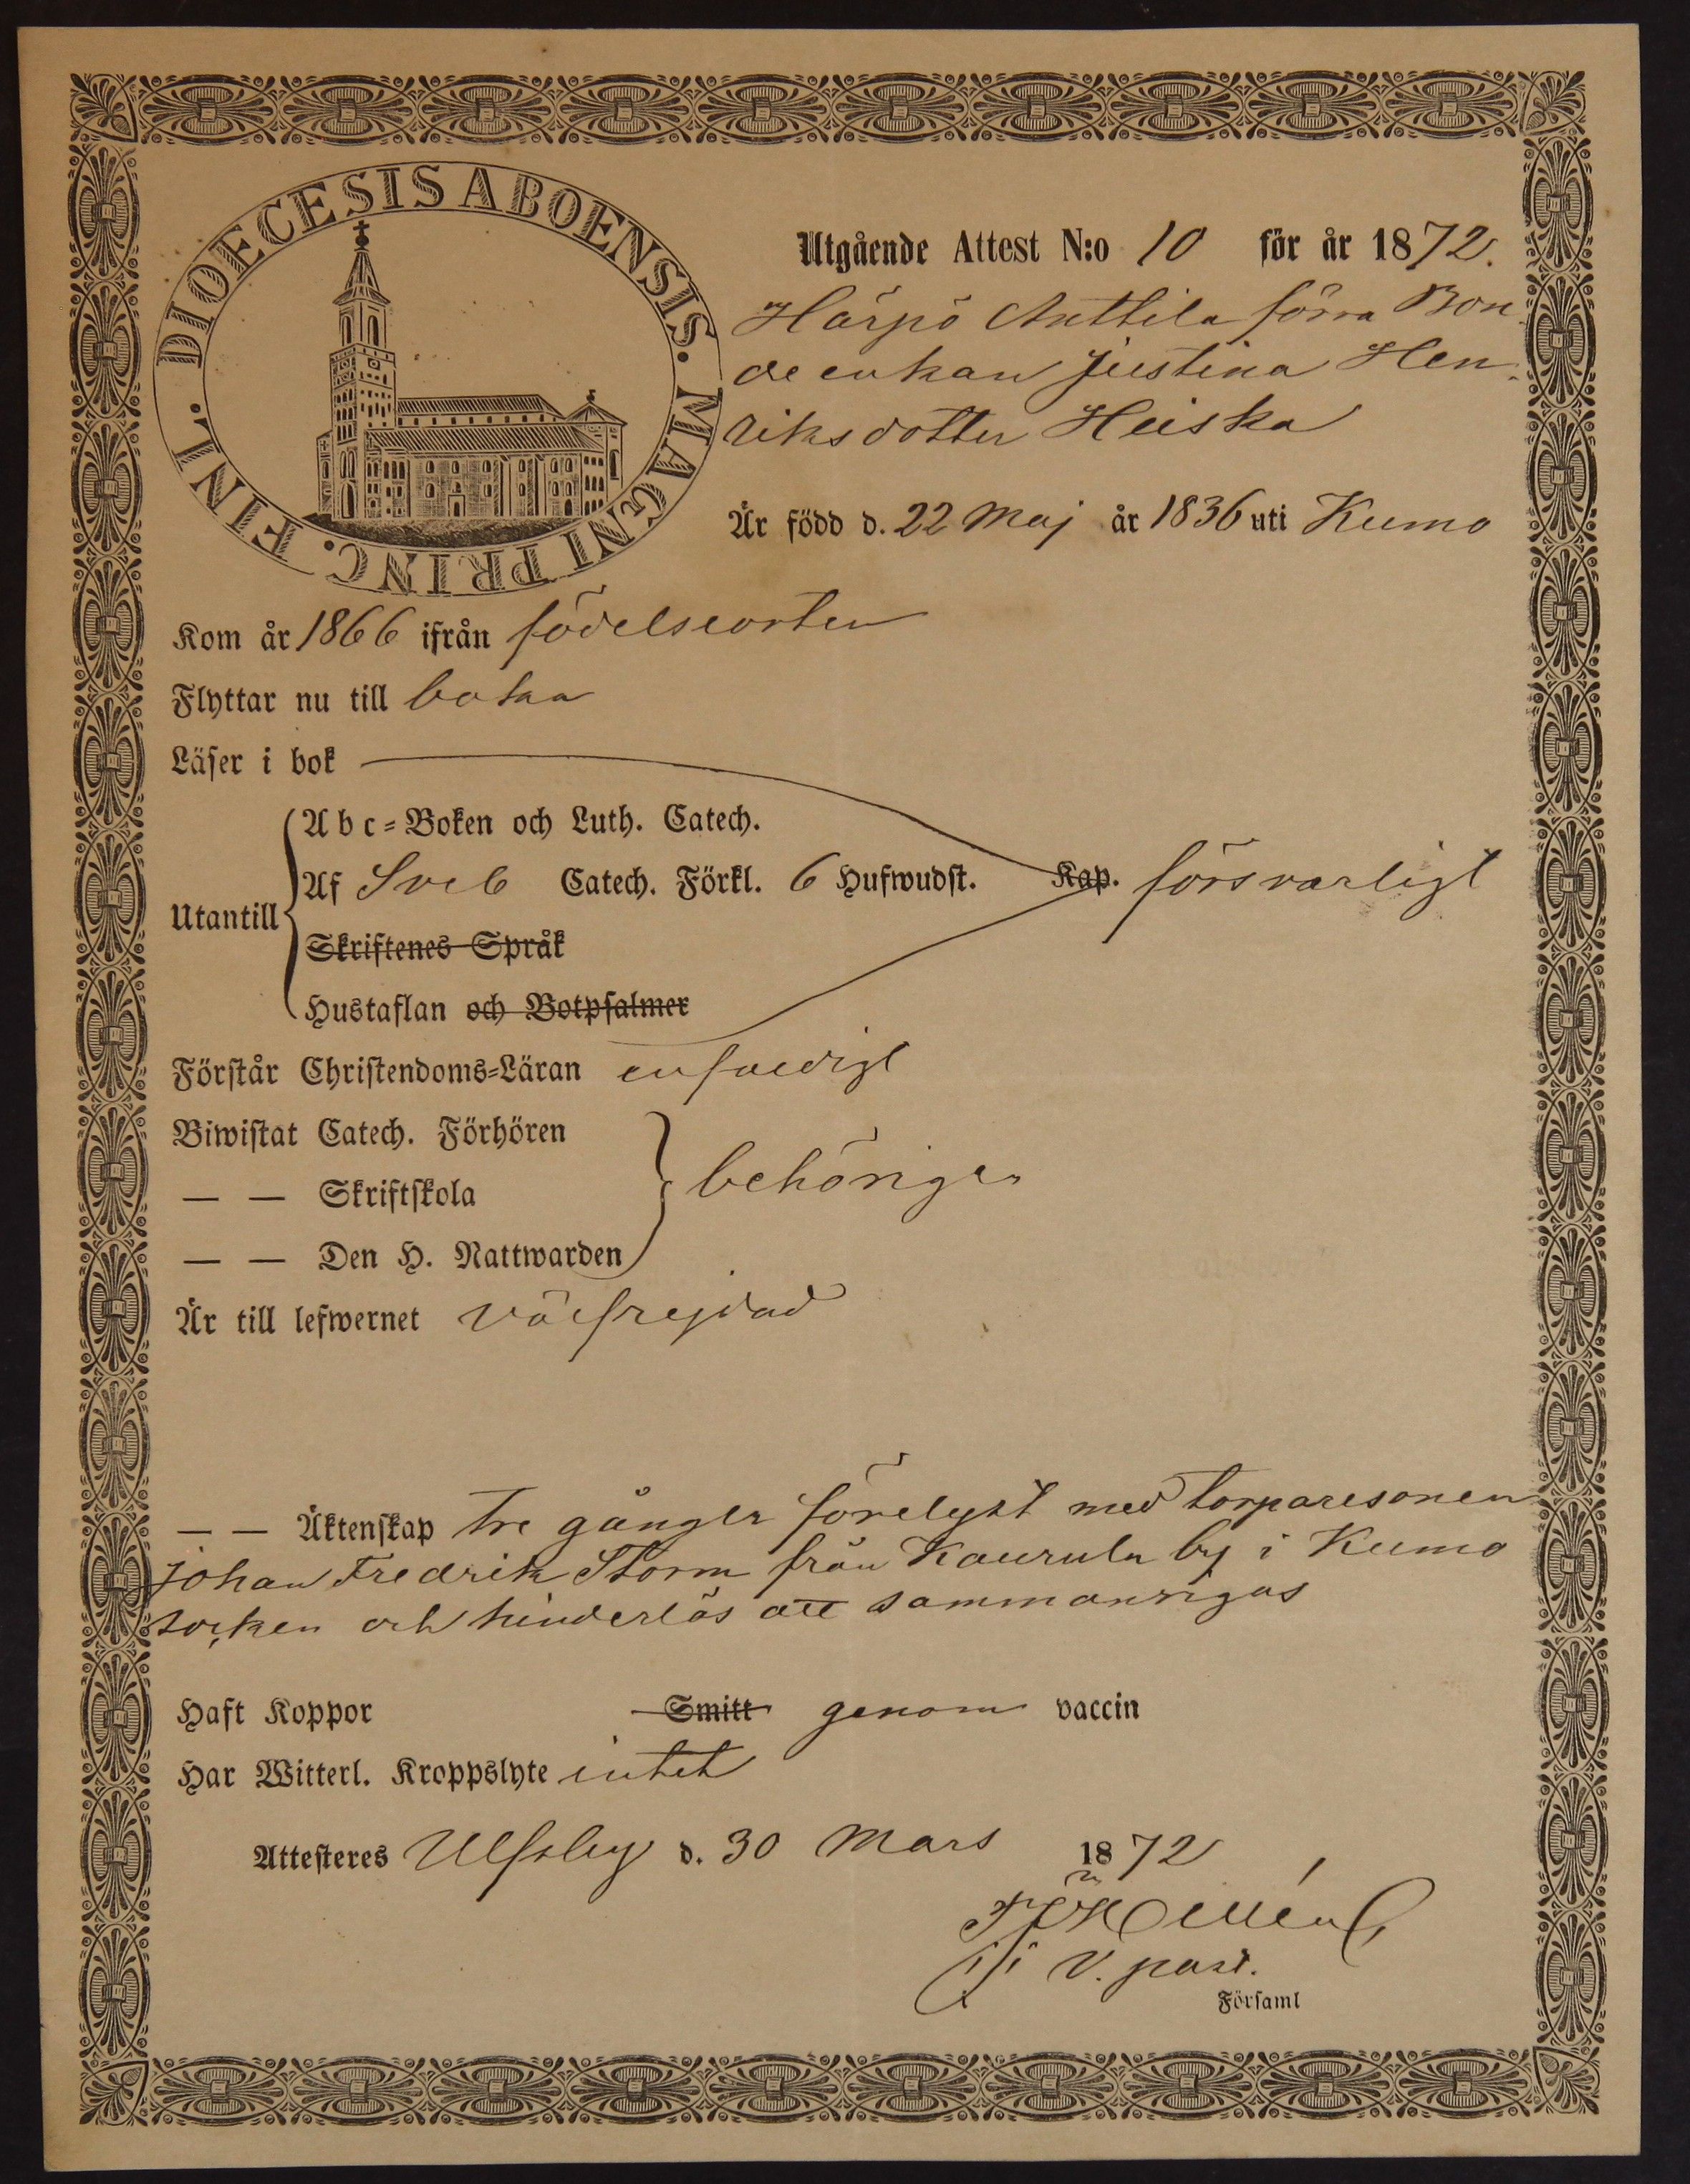 DIOECESIS ABOENSIS. MAGNI PRINC. FINL.
Utgående Attest N:o 10 för år 1872.
Härpö Anttila förra Bon-
de enkan Justina Hen-
riksdotter Heiska
Är född d. 22 Maj år 1836 uti Kumo
Kom år 1866 ifrån födelseorten
Flyttar nu till baka
Läser i bok
Abc-Boken och Luth. Catech.
Utantill Af Sveb Catech. Förkl. 6 Hufwudst. Kap. försvarligt
Skriftenes Språk
Hustaflan och Botpsalmer
Förstår Christendoms-Läran enfaldigt
Biwistat Catech. Förhören
— — Skriftskola behörigen
— — Den H. Nattwarden
Är till lefwernet välfrejdad
— — Äktenskap tre gånger förelyst med torparesonen
Johan Fredrik Storm från Kaurula by i Kumo
socken och hinderlös att sammanvigas
Haft Koppor Smitt genom vaccin
Har Witterl. Kroppslyte intet
Attesteres Ulfsby d. 30 Mars 1872
v. past.
Församl